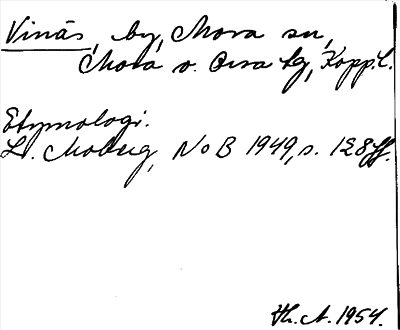 Vinäs, by, Mora sn,
Mora o. Orsa tg, Kopp.l.
Etymologi.
L. Moberg, NoB 1949, s. 128 ff.
Th. A. 1954.